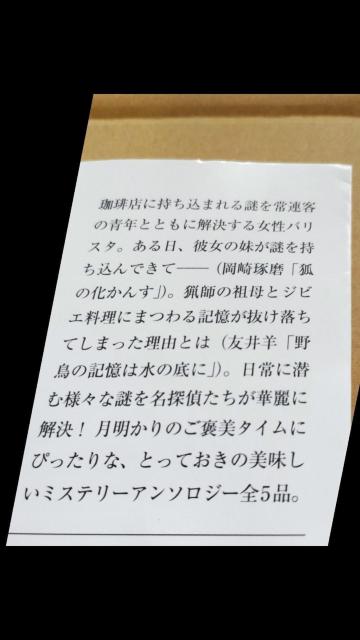 珈琲店に持ち込まれる謎を常連客
の青年とともに解決する女性バリ
スタ。ある日、彼女の妹が謎を持
ち込んできて――（岡崎琢磨「狐
の化かんす」）。猟師の祖母とジビ
エ料理にまつわる記憶が抜け落ち
てしまった理由とは（友井羊「野
鳥の記憶は水の底に」）。日常に潜
む様々な謎を名探偵たちが華麗に
解決！ 月明かりのご褒美タイムに
ぴったりな、とっておきの美味し
いミステリーアンソロジー全5品。